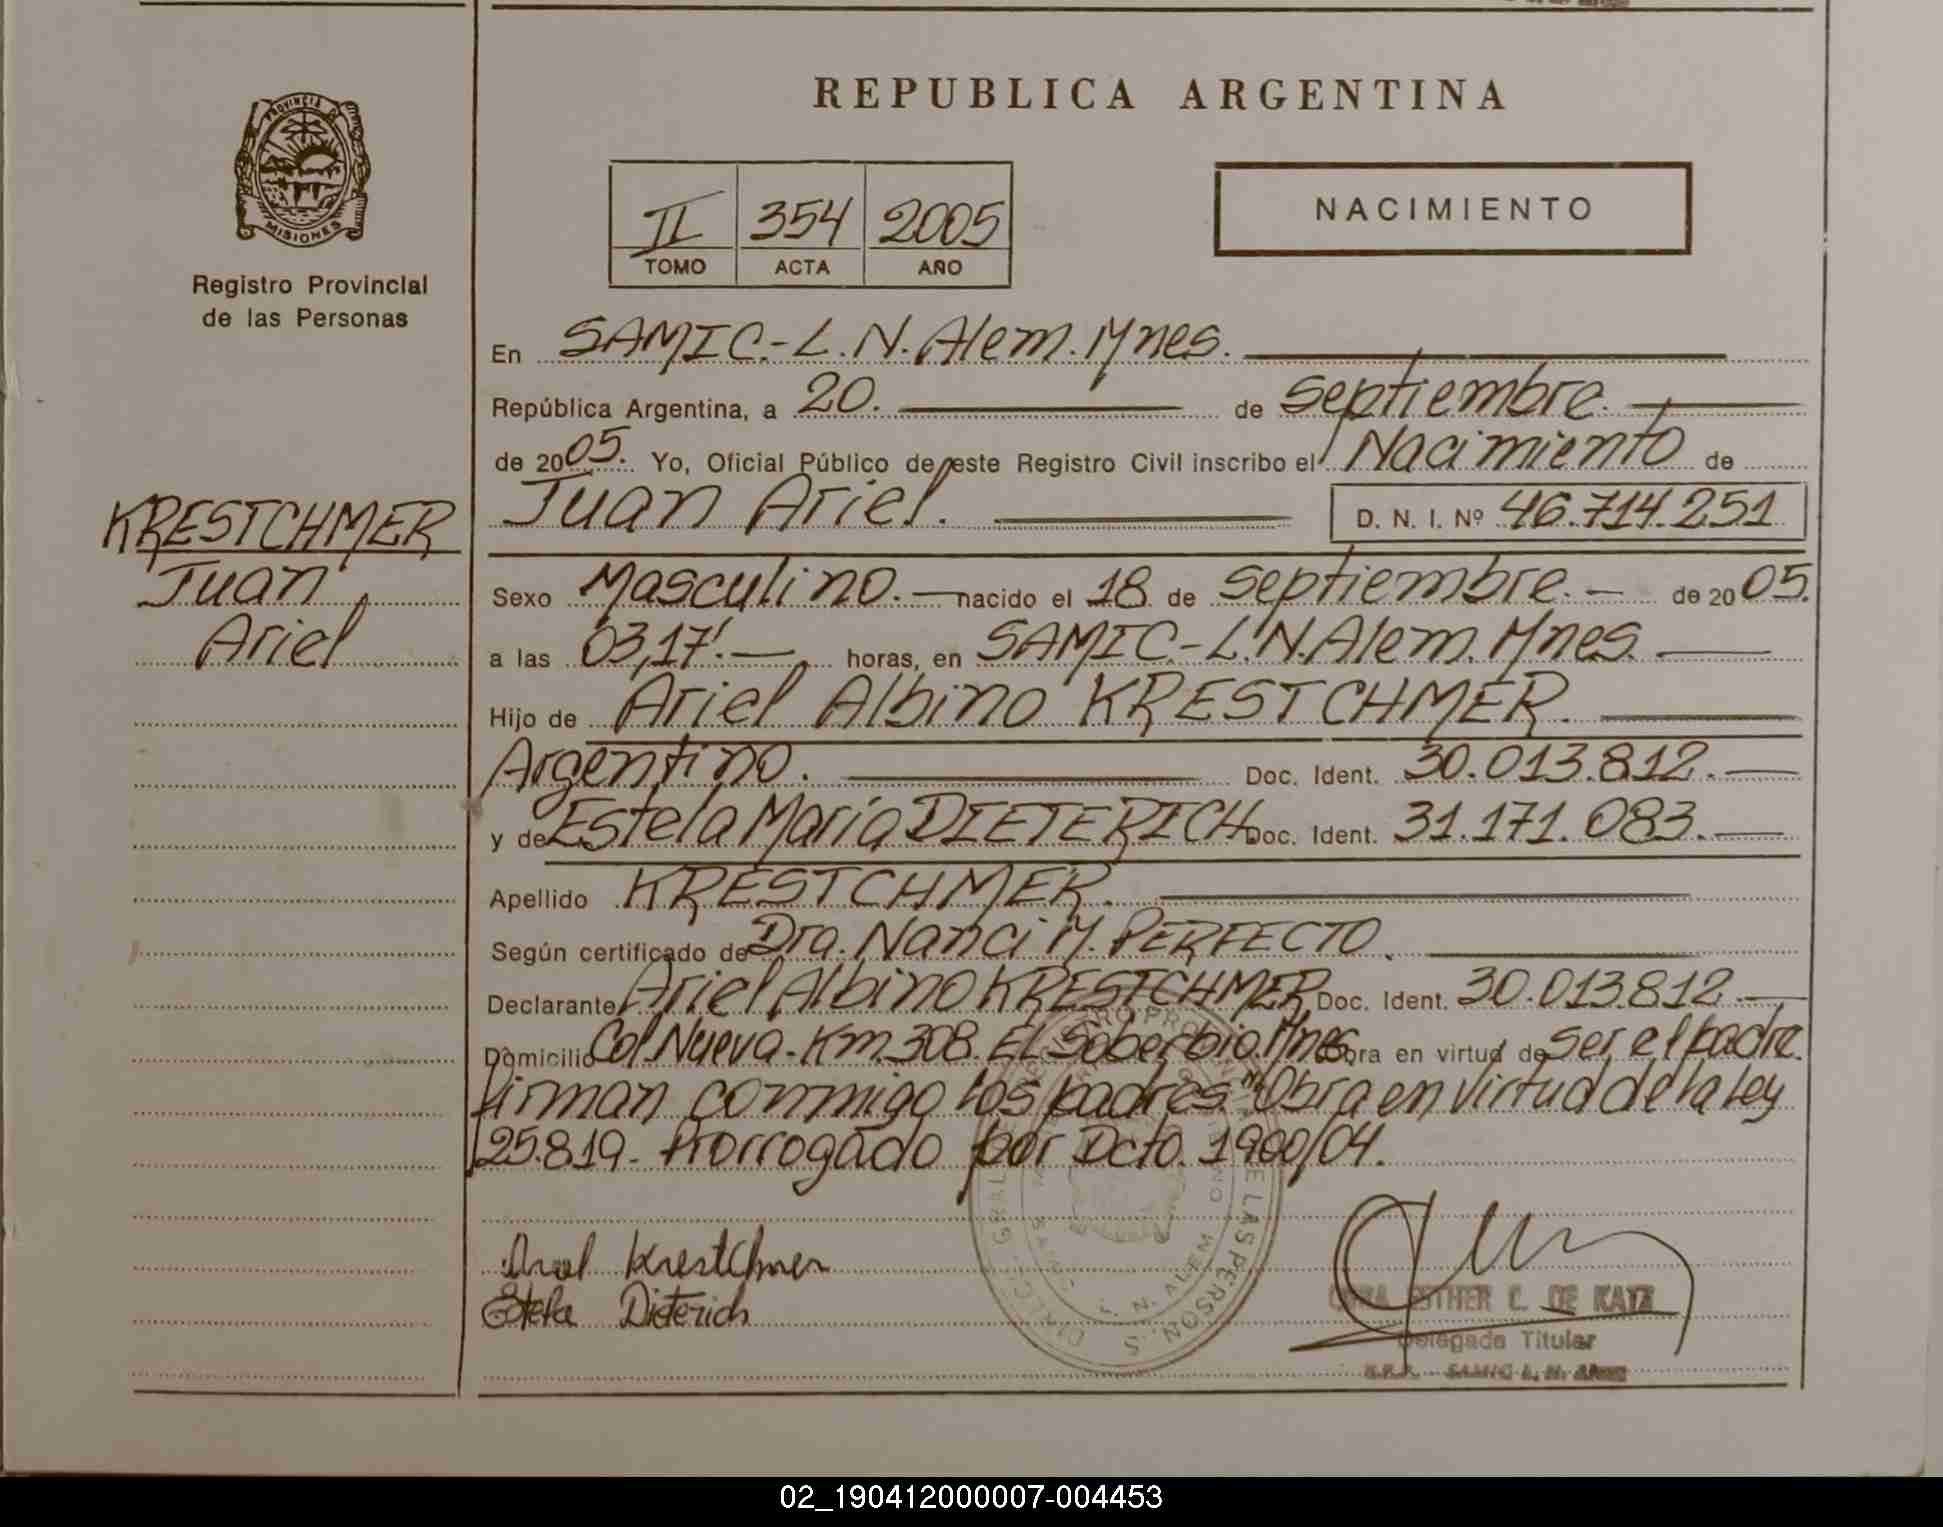 REPUBLICA ARGENTINA
PROVINCIA DE
MISIONES
Registro Provincial
de las Personas
II 354 2005
TOMO ACTA AÑO
NACIMIENTO
En SAMIC.-L.N.Alem.Mnes.
República Argentina, a 20. de septiembre.
de 2005. Yo, Oficial Público de este Registro Civil inscribo el Nacimiento de
Juan Ariel. D. N. I. Nº 46.714.251
KRESTCHMER
Juan
Ariel
Sexo Masculino.- nacido el 18 de septiembre.- de 2005.
a las 03,17'.- horas, en SAMIC.-L.N.Alem.Mnes.
Hijo de Ariel Albino KRESTCHMER.
Argentino. Doc. Ident. 30.013.812.-
y de Estela María DIETERICH Doc. Ident. 31.171.083.-
Apellido KRESTCHMER.
Según certificado de Dra. Nanci M. PERFECTO.
Declarante Ariel Albino KRESTCHMER Doc. Ident. 30.013.812.-
Domicilio Col.Nueva.-Km.308.El Soberbio.Mnes. Obra en virtud de ser el padre.
firman conmigo los padres."Obra en virtud de la Ley
25.819.- Prorrogado por Dcto. 1900/04.
Ariel Krestchmer
Estela Dieterich
ESTHER C. DE KATZ
Delegada Titular
R.P.P. SAMIC L. N. ALEM
L. N. ALEM
DE LAS PERSONAS
02_190412000007-004453